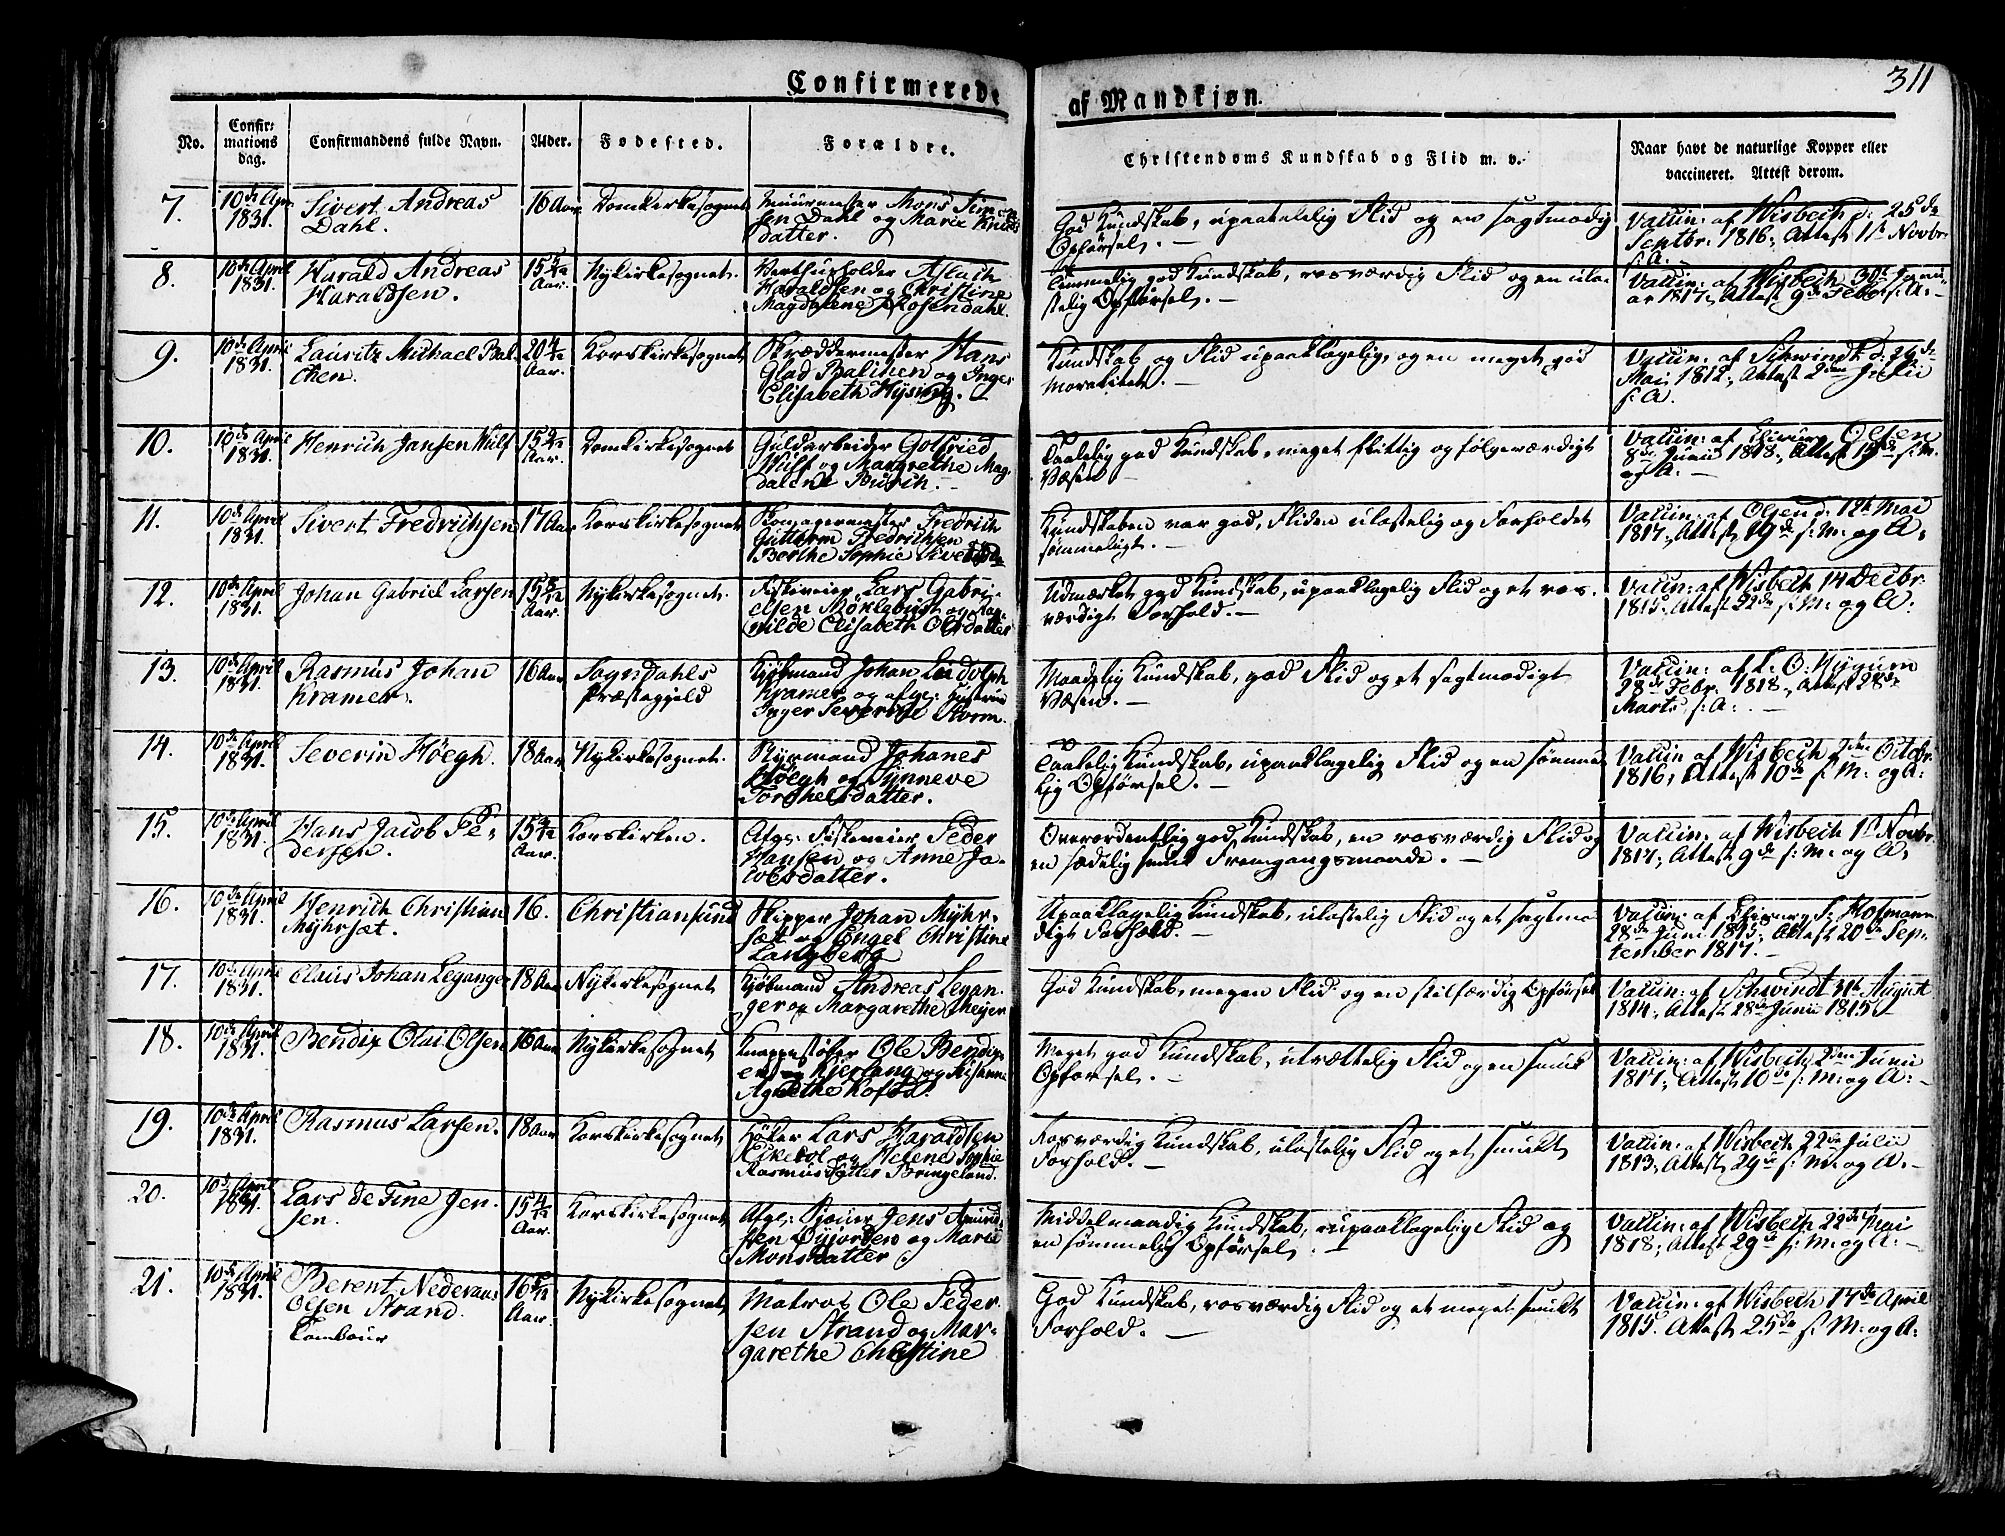 Confirmerede af Mandkjøn.
311
No.
Confir-
mations
dag.
Confirmandens fulde Navn.
Alder.
Fødested.
Forældre.
Christendoms Kundskab og Flid m. v.
Naar havt de naturlige Kopper eller
vaccineret. Attest derom.
7.
10de Apr.
1831.
Sivert Andreas
Dahl.
16 Aar
Domkirkesognet
Muurmester Mons Simon-
sen Dahl og Marie
datter.
God Kundskab, upaaklagelig Flid og en sagtmodig
Opførsel. —
Vaccin: af Wisbech d: 25de
Septbr: 1816, Attest 1ste Novbr:
s: A.
8.
10de April
1831.
Harald Andreas
Haraldsen.
15 5/12
Aar.
Nykirkesognet.
Verthusholder Aslach
Haraldsen og Christine
Magdalene Rosendahl.
Temmelig god Kundskab, rosværdig Flid og en ula-
stelig Opførsel. —
Vaccin: af Wisbech 30te Janu-
ar 1817, Attest 9de Febr: s: A: —
9.
10de April
1831.
Lauritz Michael Bal-
chen.
20 4/12
Aar.
Korskirkesognet
Skræddermester Hans
Glad Balchen og Inger
Elisabeth Hysing. —
Kundskab og Flid upaaklagelig, og en meget god
Moralitet. —
Vaccin: af Schwindt d: 26de
Mai 1812, Attest 2den Julii
s: A.
10.
10de April
1831.
Henrich Jansen Wulf
15 9/12
Aar.
Domkirkesognet
Guldarbeider Gotfried
Wulf og Margrethe Mag-
dalene Busch. —
Taalelig god Kundskab, meget flittig og følgeværdigt
Væsen —
Vaccin: af Chirurg Olsen
8de Junii 1818, Attest 19de s: M:
og A: —
11.
10de April
1831.
Sivert Fredrichsen
17 Aar
Korskirkesognet
Skomagermester Fredrich
Guttorm Fredrichsen
Berthe Sophie
Kundskaben var god, Fliden ulastelig og Forholdet
sømmeligt. —
Vaccin: af Olsen d: 12te Mai
1817, Attest 19de s: M: og A.
12.
10de April
1831.
Johan Gabriel Larsen
15 8/12
Aar.
Nykirkesognet.
Fiskeveier Lars Gabri-
elsen Möklebust og Rag-
nilde Elisabeth Olsdatter
Udmærket god Kundskab, upaaklagelig Flid og et ros-
værdigt Forhold. —
Vaccin: af Wisbech 14 Decbr.
1815. Attest 22de s: M: og A:
13.
10de April
1831.
Rasmus Johan
Kramer.
16 Aar
Sogndahls
Præstegjeld
Kjøbmand Johan Lindolph
Kramer og afgl: Hustrue
Inger Severine Storm.
Maadelig Kundskab, god Flid og et sagtmodigt
Væsen. —
Vaccin: af L: O: Nygum
28de Febr. 1818, Attest 28de
Marts s: A: . —
14.
10de April
1831.
Severin Höegh.
18 Aar
Nykirkesognet.
Styrmand Johanes
Höegh og Synneve
Torchelsdatter.
Taalelig Kundskab, upaaklagelig Flid og en sømme-
lig Opførsel. —
Vaccin af Wisbech 2den Octbr.
1816, Attest 10de s: M: og A:
15.
10de April
1831.
Hans Jacob Pe-
dersen.
15 9/12
Aar.
Korskirken.
Afgl: Fiskeveier Peder
Hansen og Anne Ja-
cobsdatter.
Overordentlig god Kundskab, en rosværdig Flid og
en sædelig smuk Fremgangsmaade. —
Vaccin: af Wisbech 1ste Novbr.
1817, Attest 9de s: M: og A,
16.
10de April
1831.
Henrich Christian
Myhrsæt.
16.
Christiansund
Skipper Johan Myhr-
sæt og Engel Christine
Langberg
Upaaklagelig Kundskab, ulastelig Flid og et sagtmo-
digt Forhold. —
Vaccin: af Chirurg F: Hofmann
28de Juni 1815, Attest 20de Sep-
tember 1817. —
17.
10de April
1831.
Claus Johan Leganger
18 Aar
Nykirkesognet
Kjøbmand Andreas Legan-
ger og Margarethe Meyer
God Kundskab, megen Flid og en stilfærdig Opførsel
Vaccin: af Schwindt 31te August
1814, Attest 28de Junii 1815
18.
10de April
1831.
Bendix Olai Olsen
16 Aar
Nykirkesognet
Knappestøber Ole Bendix-
en Kjerlang og Susanne
Agnethe Kofod.
Meget god Kundskab, utrættelig Flid og en smuk
Opførsel. —
Vaccin: af Wisbech 2den Junii
1817, Attest 10de s: M: og A: —
19.
10de April
1831.
Rasmus Larsen.
18 Aar
Korskirkesognet
Høker Lars Haraldsen
og Helene Sophie
Rasmusdatter Bringeland.
Rosværdig Kundskab, ulastelig Flid og et smukt
Forhold. —
Vaccin: af Wisbech 22de Julii
1813, Attest 29de s: M: og A. —
20.
10de April
1831.
Lars de Fine Jen-
sen.
15 4/12
Aar.
Korskirkesognet
Afgl: Jens Amund-
sen Öyjorden og Marie
Monsdatter
Middelmaadig Kundskab, upaaklagelig Flid og
en sømmelig Opførsel. —
Vaccin: af Wisbech 22de Mai
1818, Attest 29de s: M: og A: —
21.
10de April
1831.
Berent Nederaas
Olsen Strand.
Tambour
16 5/12
Aar.
Nykirkesognet
Matros Ole Peder-
sen Strand og Mar-
garethe Christine
God Kundskab, rosværdig Flid og et meget smukt
Forhold. —
Vaccin: af Wisbech 17de April
1815. Attest 25de s: M: og A: